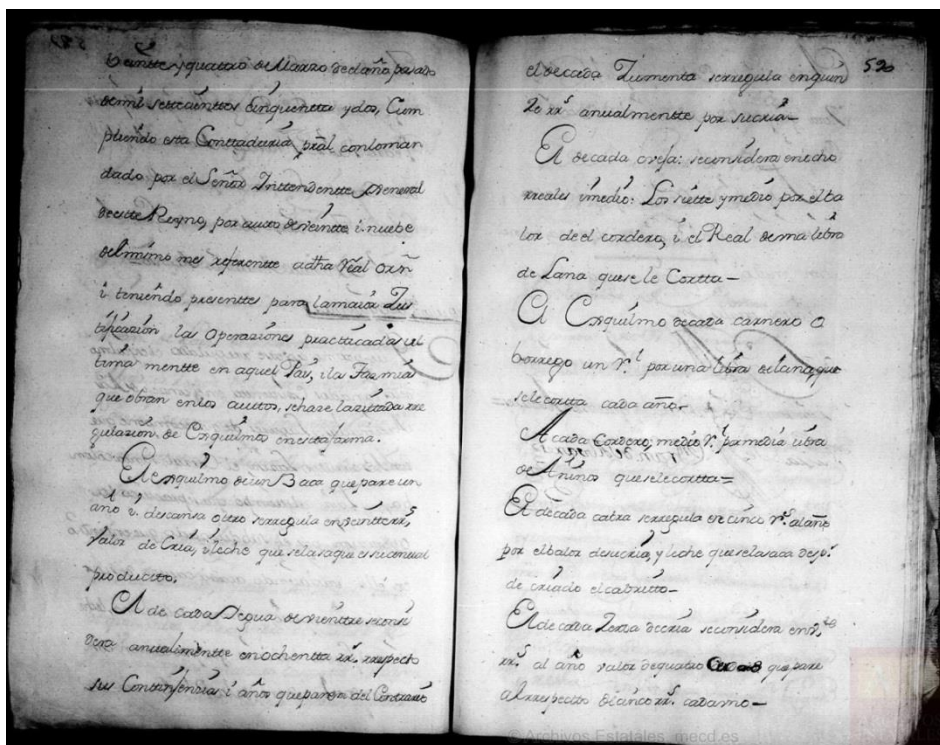 Veinte y quattro de Marzo de el año pasado
de mil settecienttos cinquentta y dos, Cum
pliendo esta Conttaduria pral con lo man
dado por el Señor Inttendentte General
de este Reyno, por autto de veintte i nuebe
del mismo mes referentte a dha Rial orñ
i teniendo presenttes para la maior Jus
tificazion las Operaziones practticadas ul
tima mentte en aquel Pais, i la
que obran en los auttos, se haze la zittada rre
gulazion de Esquilmos en esta forma.
El esquilmo de un Baca que pare un
año i descansa ottro se rregula en veintte rrs,
valor de Cria, i leche que se la saca es su anual
productto.
El de cada Yegua de vienttre se consi
dera anualmentte en ochentta rrs. rrespectto
sus Contingencias i años que pare, i del Conttrario
520
el de cada Jumentta se rregula en quin
ze rrs anualmentte por su cria—
El de cada oveja: se considera en ocho
rreales i medio: Los siette y medio por el ba
lor de el cordero, i el Real de una libra
de Lana que se le Cortta—
El Esquilmo de cada carnero o
borrego un Rl por una libra de lana, que
se le cortta cada año—
A cada Cordero, medio Rl por media libra
de Aninos que se le cortta=
El de cada cabra se rregula en cinco Rs al año
por el balor de su cria, y leche que se la saca desps
de criado el cabritto—
El de cada Zerda de cria se considera en
rrs al año valor de quatro que pare
al rrespectto de cinco rrs cada uno—
© Archivos Estatales mecd.es